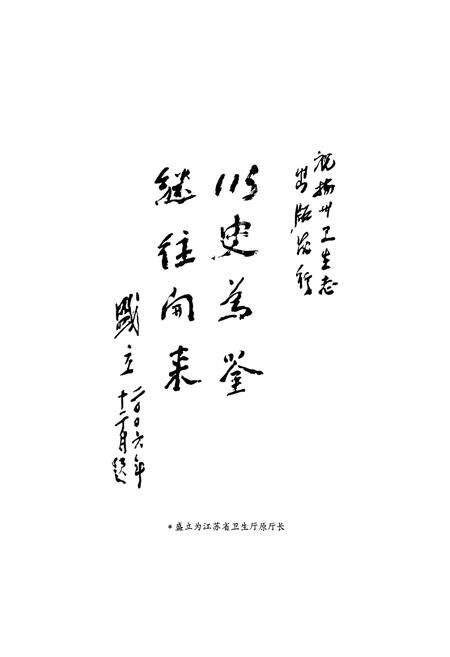 祝扬州卫生志
出版发行
以史为鉴
继往开来
盛立
二〇〇六年
十二月题
*盛立为江苏省卫生厅原厅长